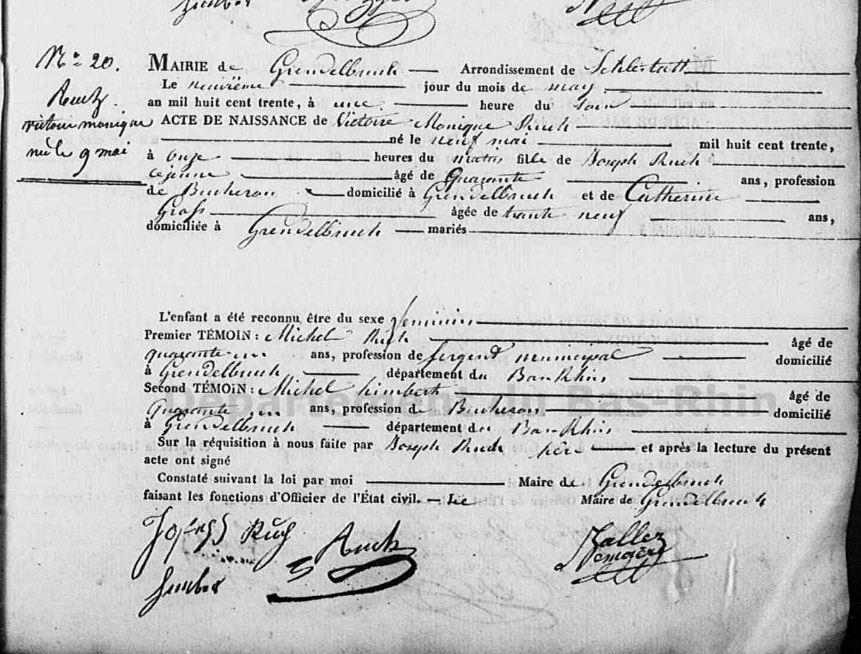 N° 20.
Ruch
victoire monique
né le 9 mai
MAIRIE de Grendelbruch Arrondissement de Schlestatt
Le neuvième jour du mois de may
an mil huit cent trente, à une heure du soir
ACTE DE NAISSANCE de Victoire Monique Ruch
né le neuf mai mil huit cent trente,
à onze heures du matin fille de Joseph Ruch
le jeune âgé de Quarante ans, profession
de Bucheron domicilié à Grendelbruch et de Catherine
Grofs âgée de trente neuf ans,
domiciliée à Grendelbruch mariés
L'enfant a été reconnu être du sexe feminin
Premier TÉMOIN : Michel Ruch âgé de
quarante un ans, profession de sergent municipal domicilié
à Grendelbruch département du Bas Rhin
Second TÉMOIN : Michel Himbert âgé de
Quarante un ans, profession de Bucheron domicilié
à Grendelbruch département du Bas Rhin
Sur la réquisition à nous faite par Joseph Ruch père et après la lecture du présent
acte ont signé
Constaté suivant la loi par moi Maire de Grendelbruch
faisant les fonctions d'Officier de l'État civil. Le Maire de Grendelbruch
Joseph Ruch Ruch
Département du Bas-Rhin